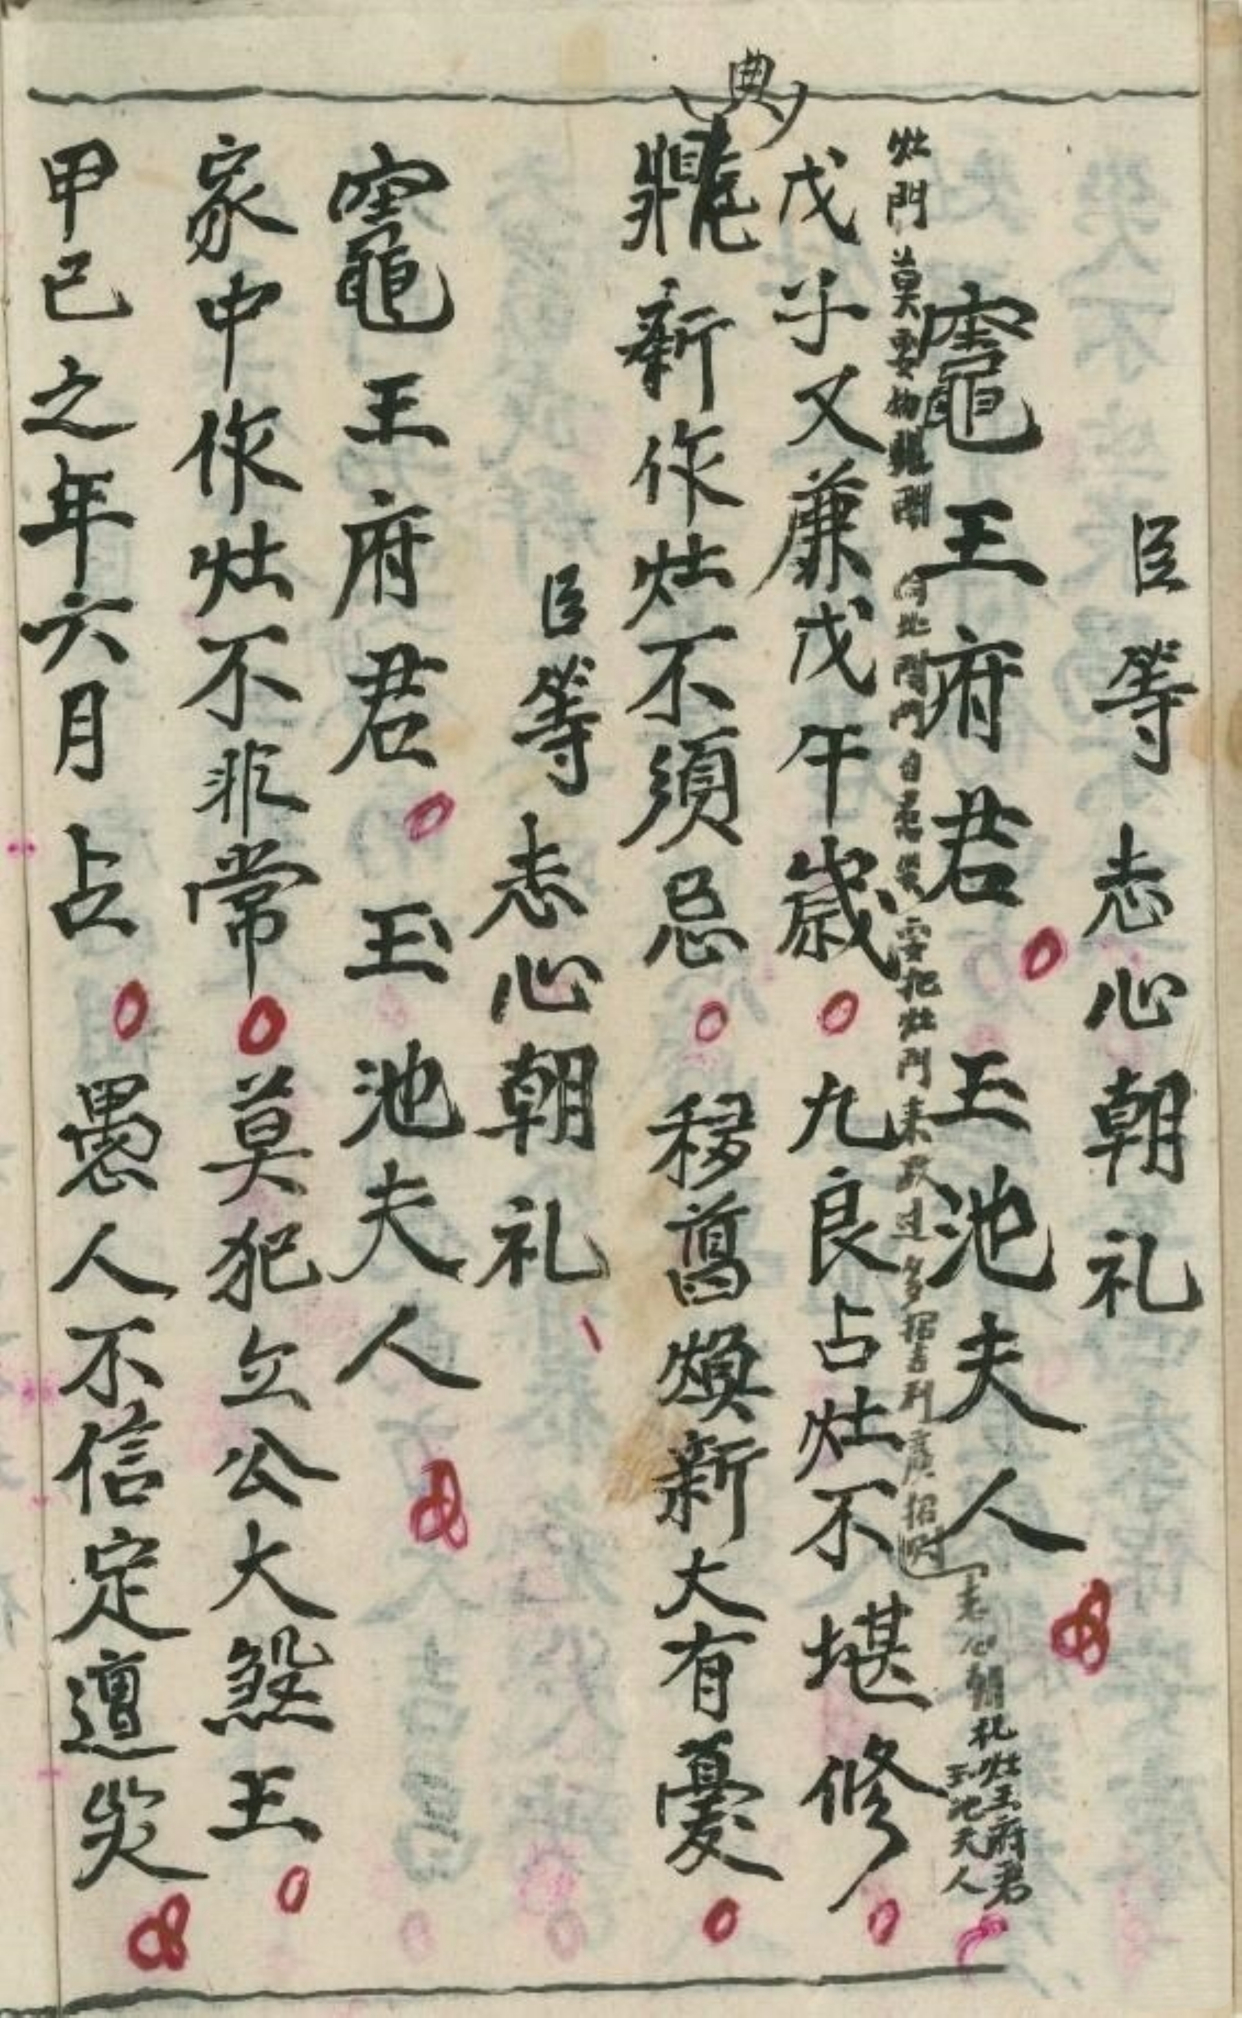 臣等志心朝礼
竈王府君玉池夫人
灶門莫要
向北開門自
要把灶門来改过多招吉利廣招財
志心朝礼灶王府君
玉池夫人
戊子又廉戊午歳九良占灶不堪修
典
鼎新作灶不須忌移舊煥新大有憂
臣等志心朝礼
竈王府君玉池夫人
家中作灶不非常莫犯立公大煞王
甲己之年六月占愚人不信定邅災